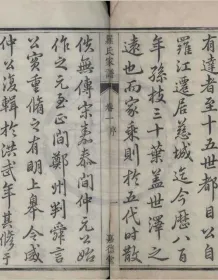 有達者至十五世都目公自
羅江遷居慈城迄今歷八百
年孫枝三十葉蓋世澤之
遠也而家乘則於五代時散
羅氏家譜 卷一 序
佚無傳宋嘉泰間仲元公始
作之元至正間鄭州判舜言
公實重脩之有明上皋令咸
仲公復輯於洪武年其脩于